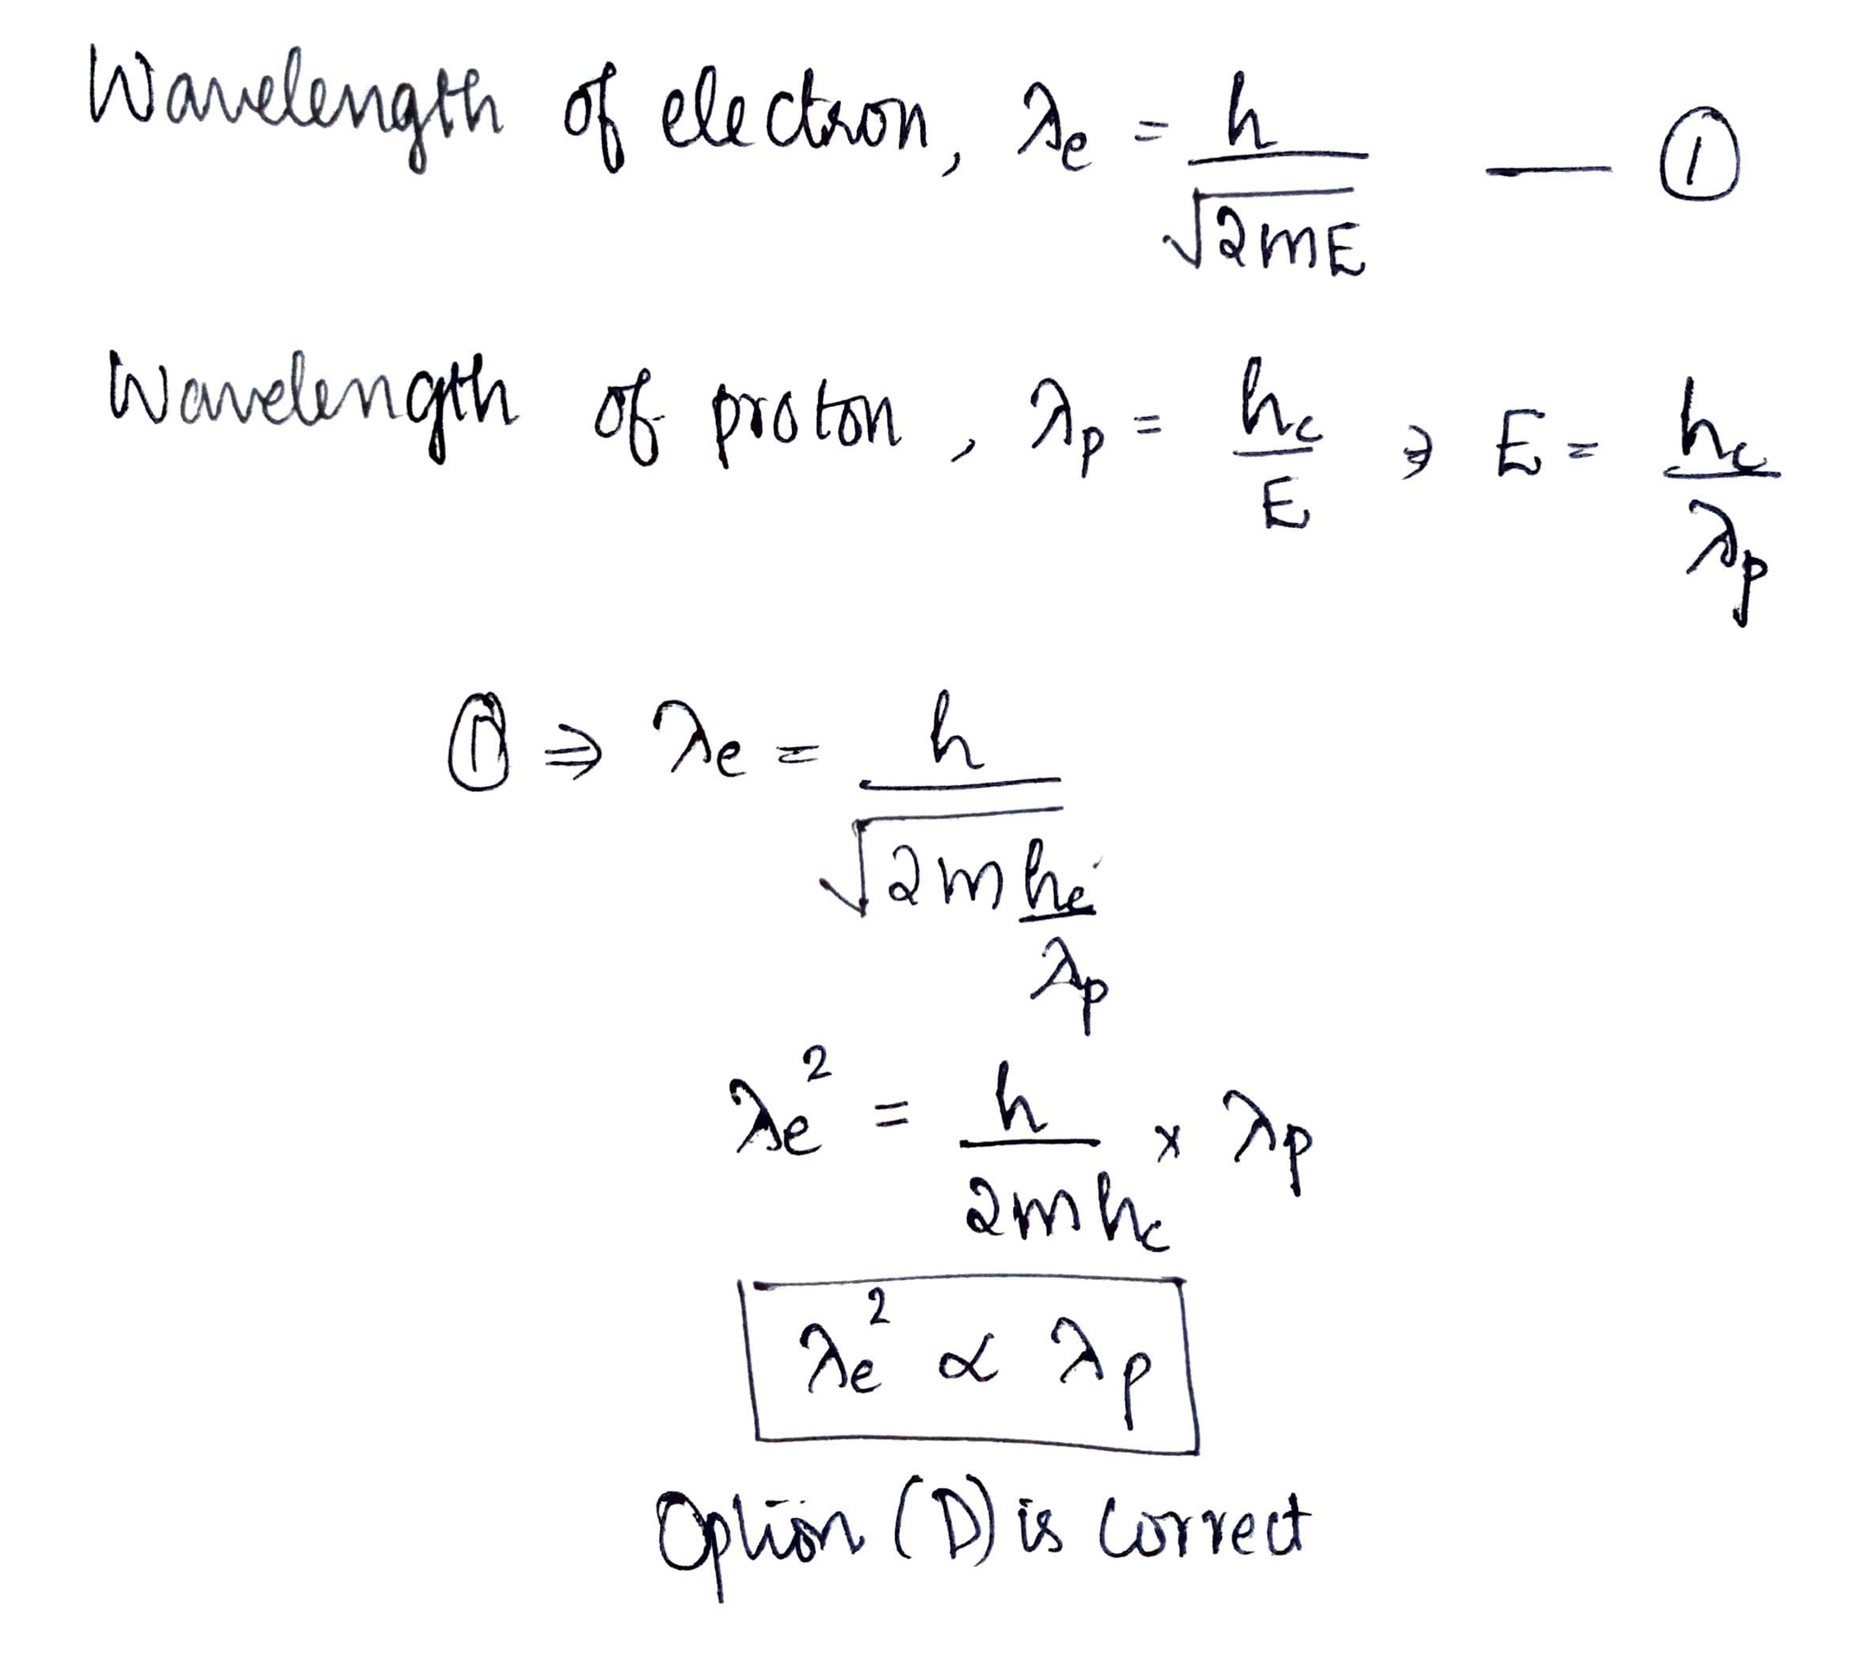 Wavelength of electron, λe = h/√2mE — ①
Wavelength of proton, λp = hc/E ⇒ E = hc/λp
① ⇒ λe = h/√2m hc/λp
λe² = h/2mhc × λp
λe² ∝ λp
Option (D) is correct